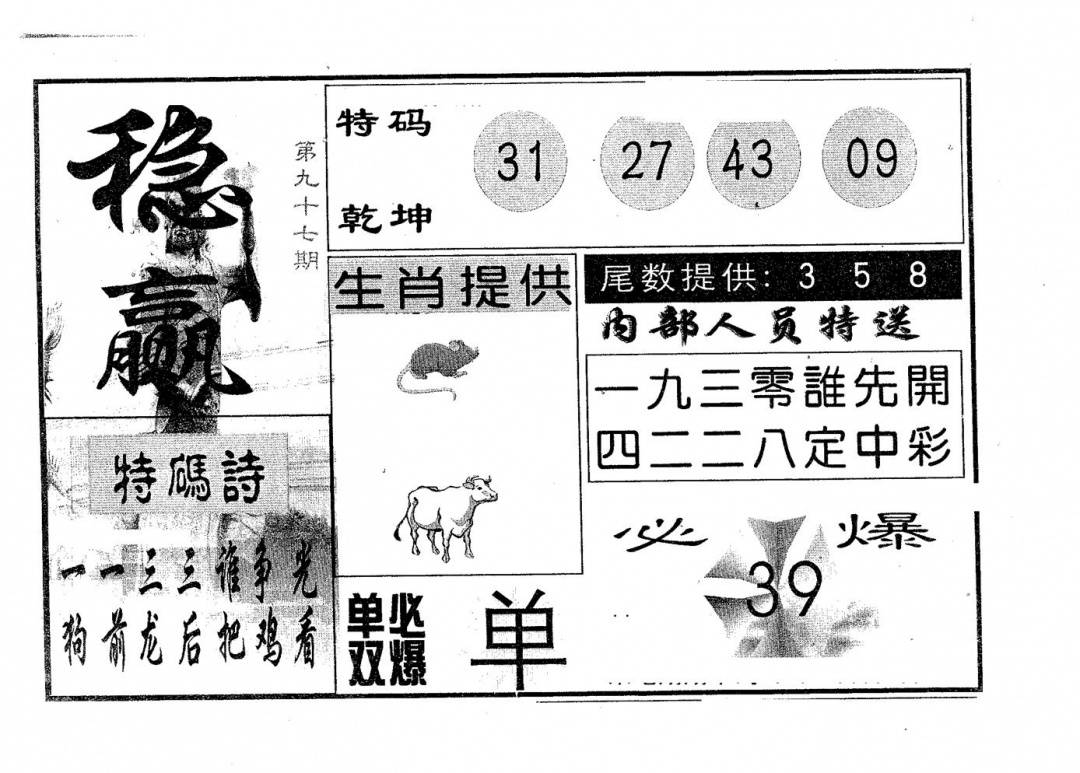 稳赢
第九十七期
特码
乾坤
31 27 43 09
特碼詩
一一三三谁争光
狗前龙后把鸡看
生肖提供
单双必爆
单
尾数提供: 3 5 8
内部人员特送
一九三零誰先開
四二二八定中彩
必爆
39